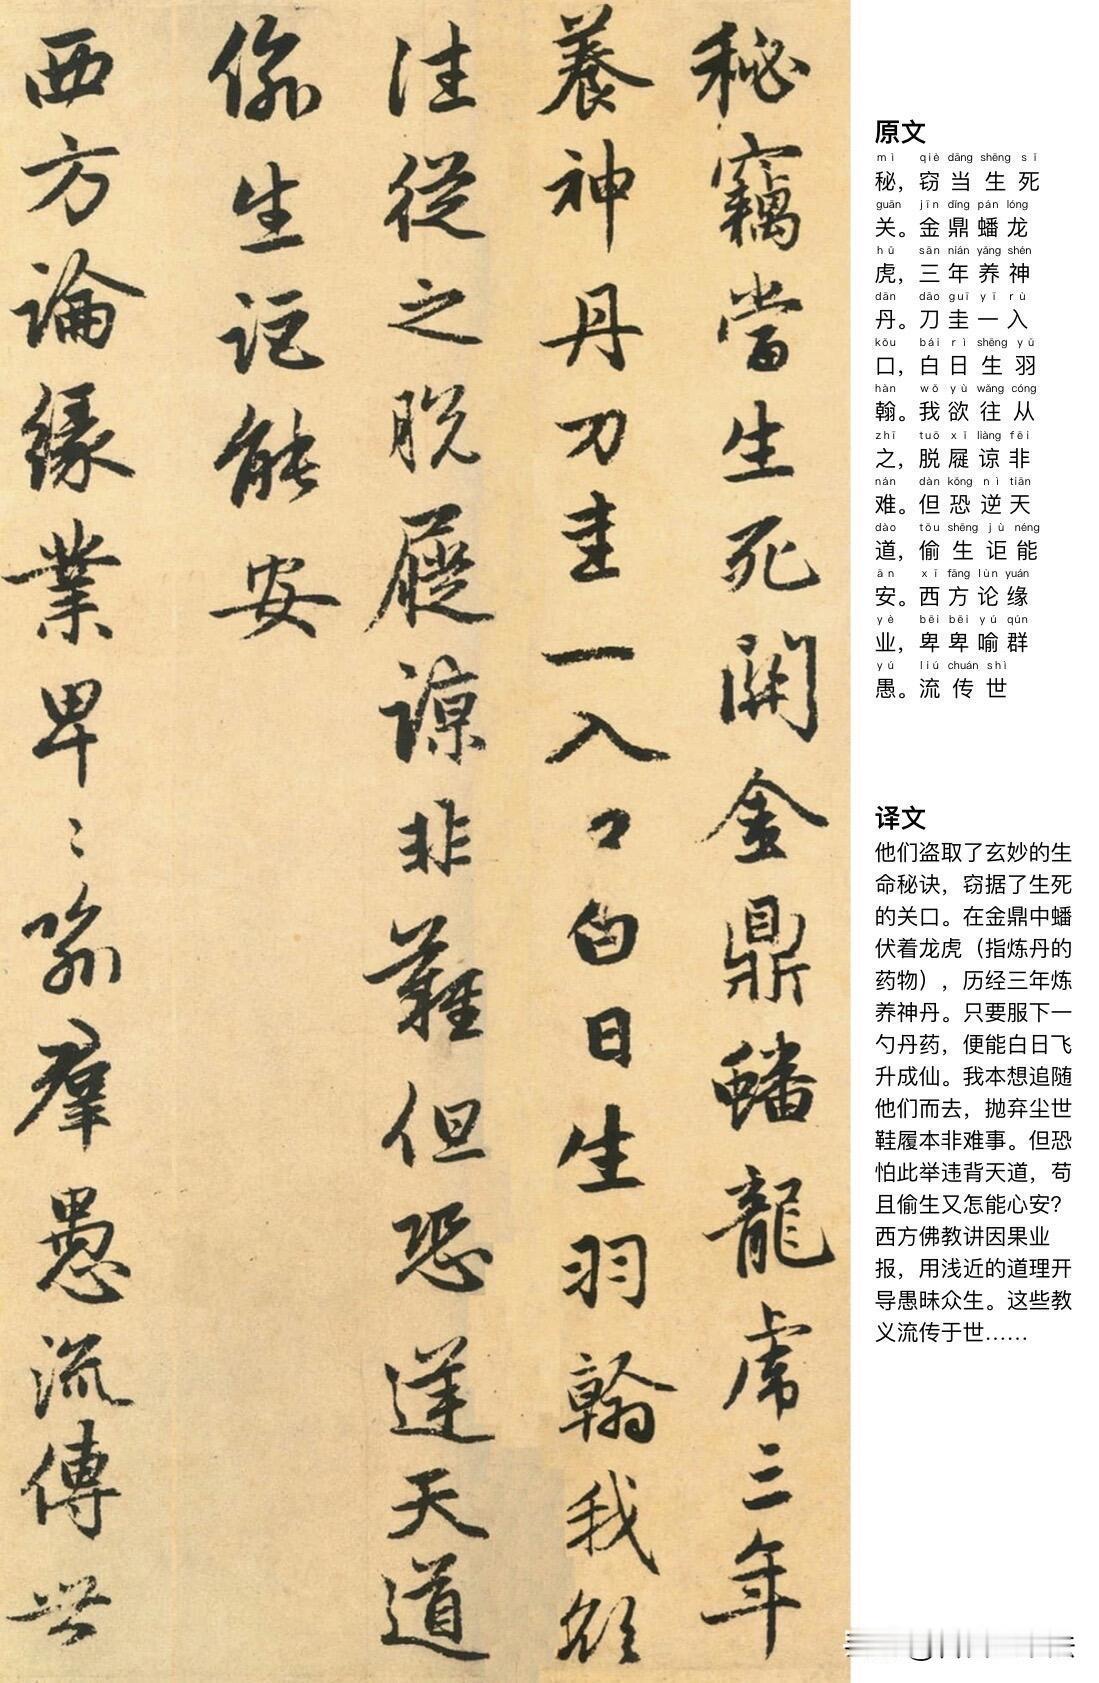 秘竊當生死關金鼎蟠龍虎三年
養神丹刀圭一入口白日生羽翰我欲
往從之脱屣諒非難但恐逆天道
偷生詎能安
西方論緣業卑〻喻羣愚流傳世
原文
mì qiè dāng shēng sǐ
秘，窃当生死
guān jīn dǐng pán lóng
关。金鼎蟠龙
hǔ sān nián yǎng shén
虎，三年养神
dān dāo guī yī rù
丹。刀圭一入
kǒu bái rì shēng yǔ
口，白日生羽
hàn wǒ yù wǎng cóng
翰。我欲往从
zhī tuō xǐ liàng fēi
之，脱屣谅非
nán dàn kǒng nì tiān
难。但恐逆天
dào tōu shēng jù néng
道，偷生讵能
ān xī fāng lùn yuán
安。西方论缘
yè bēi bēi yú qún
业，卑卑喻群
yú liú chuán shì
愚。流传世
译文
他们盗取了玄妙的生
命秘诀，窃据了生死
的关口。在金鼎中蟠
伏着龙虎（指炼丹的
药物），历经三年炼
养神丹。只要服下一
勺丹药，便能白日飞
升成仙。我本想追随
他们而去，抛弃尘世
鞋履本非难事。但恐
怕此举违背天道，苟
且偷生又怎能心安？
西方佛教讲因果业
报，用浅近的道理开
导愚昧众生。这些教
义流传于世……